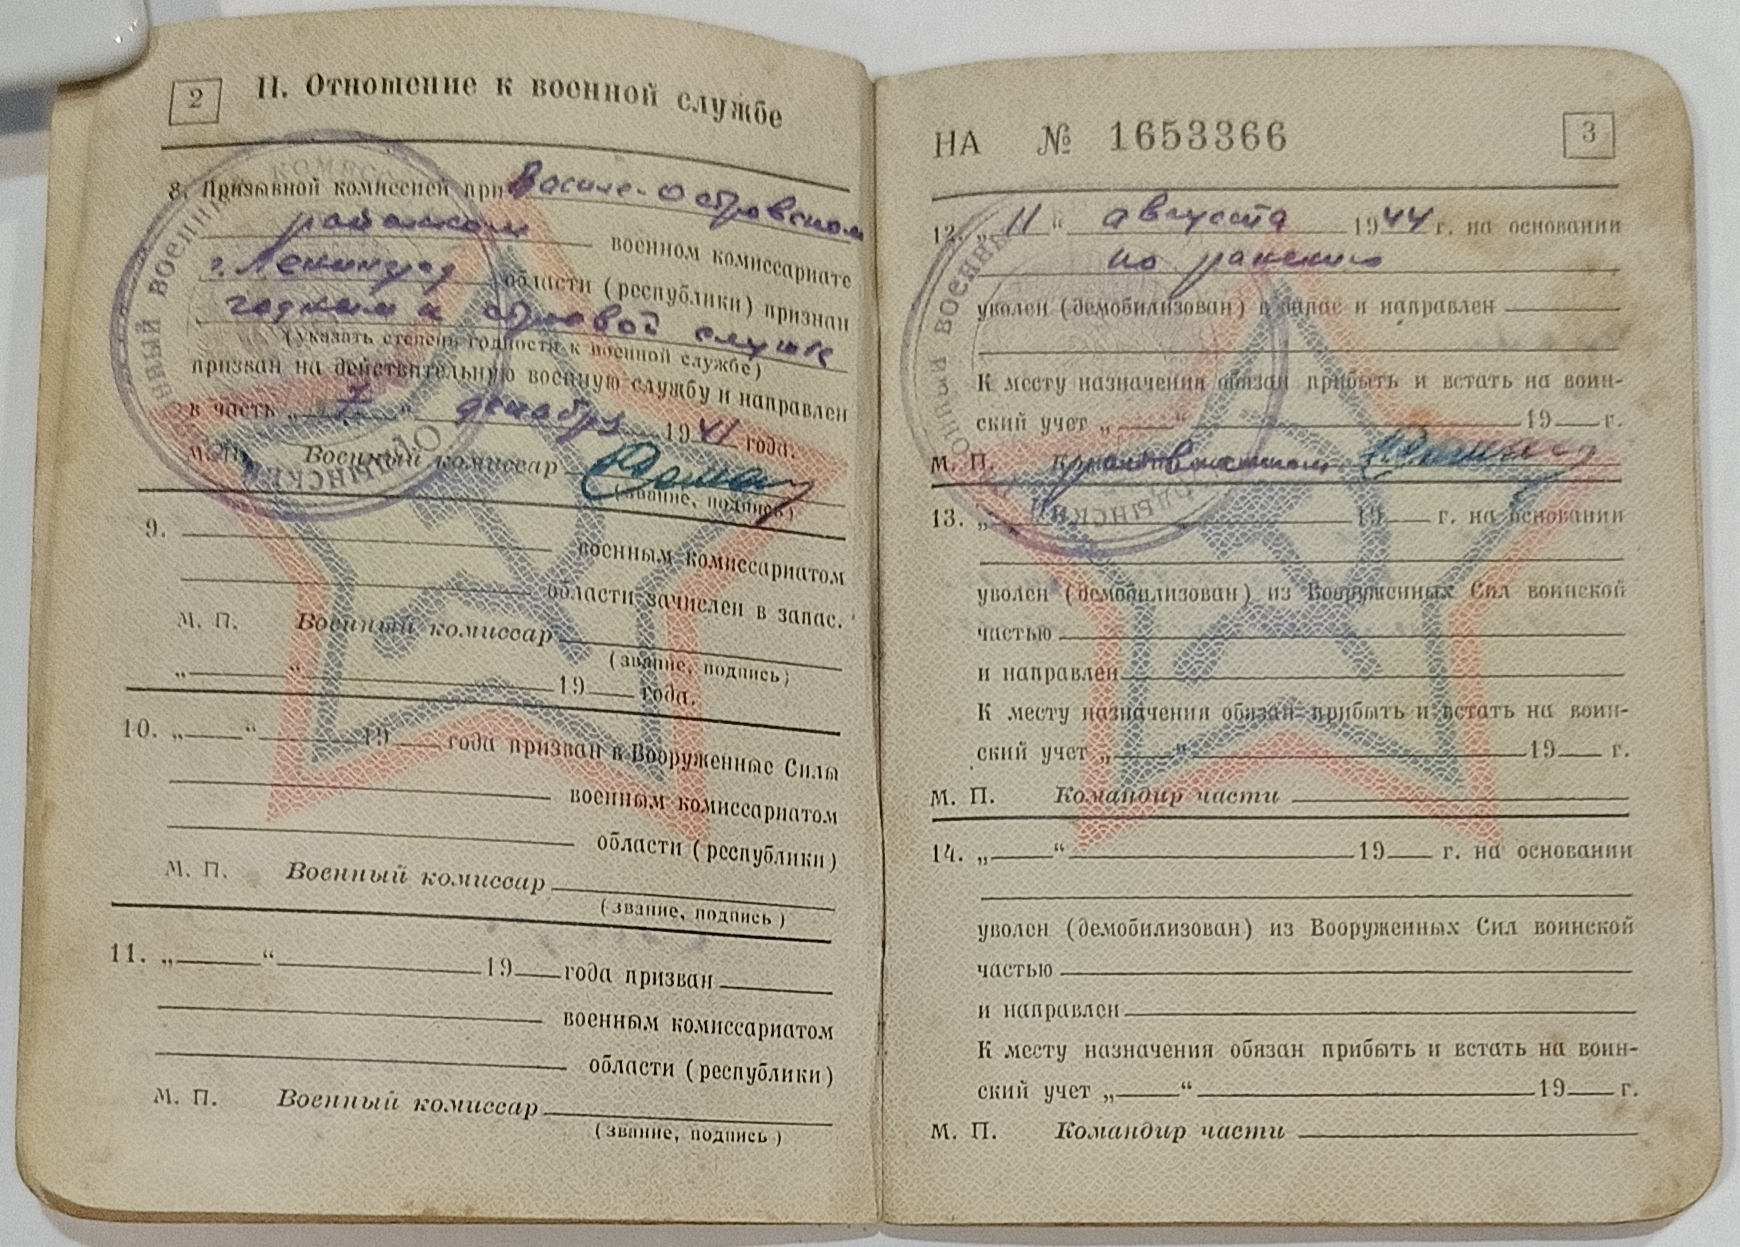 2
II. Отношение к военной службе
8. Призывной комиссией при Василе-Островском
районном военном комиссариате
г. Ленинград области (республики) признан
годным к строевой службе
(указать степень годности к военной службе)
призван на действительную военную службу и направлен
в часть „ 7 “ декабря 1941 года.
М. П. Военный комиссар
(звание, подпись)
9.
военным комиссариатом
области зачислен в запас.
М. П. Военный комиссар
(звание, подпись)
„ “ 19 года.
10. „ “ 19 года призван в Вооруженные Силы
военным комиссариатом
области (республики)
М. П. Военный комиссар
(звание, подпись)
11. „ “ 19 года призван
военным комиссариатом
области (республики)
М. П. Военный комиссар
(звание, подпись)
НА № 1653366
3
12. „ 11 “ августа 1944 г. на основании
по ранению
уволен (демобилизован) в запас и направлен
К месту назначения обязан прибыть и встать на воин-
ский учет „ “ 19 г.
М. П.
13. „ 19 г. на основании
уволен (демобилизован) из Вооруженных Сил воинской
частью
и направлен
К месту назначения обязан прибыть и встать на воин-
ский учет „ “ 19 г.
М. П. Командир части
14. „ “ 19 г. на основании
уволен (демобилизован) из Вооруженных Сил воинской
частью
и направлен
К месту назначения обязан прибыть и встать на воин-
ский учет „ “ 19 г.
М. П. Командир части